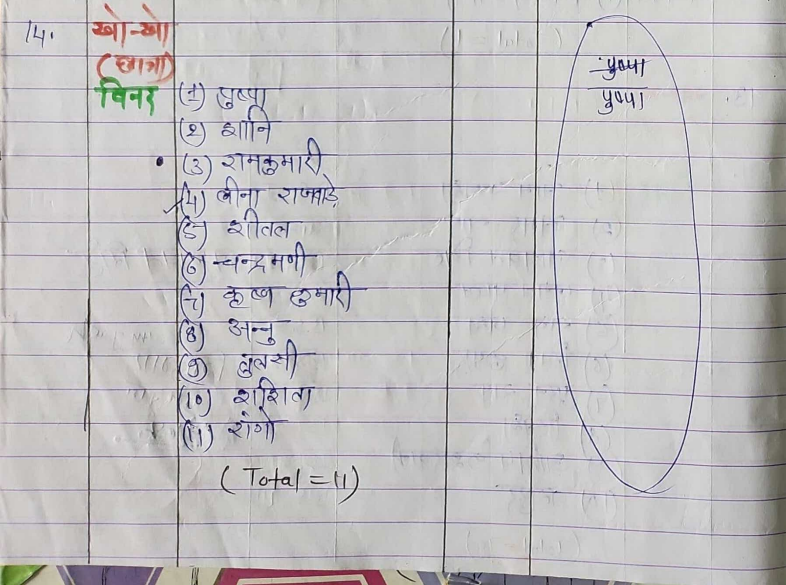 14. खो-खो
(छात्रा)
विनर (1) पुष्पा
(2) शानि
(3) रामकुमारी
(4) बीना राजवाड़े
(5) शीतल
(6) चन्द्रमणी
(7) कृष्ण कुमारी
(8) अन्नु
(9) तुलसी
(10) शशिता
(11) रांगो
(Total = 11)
पुष्पा
पुष्पा